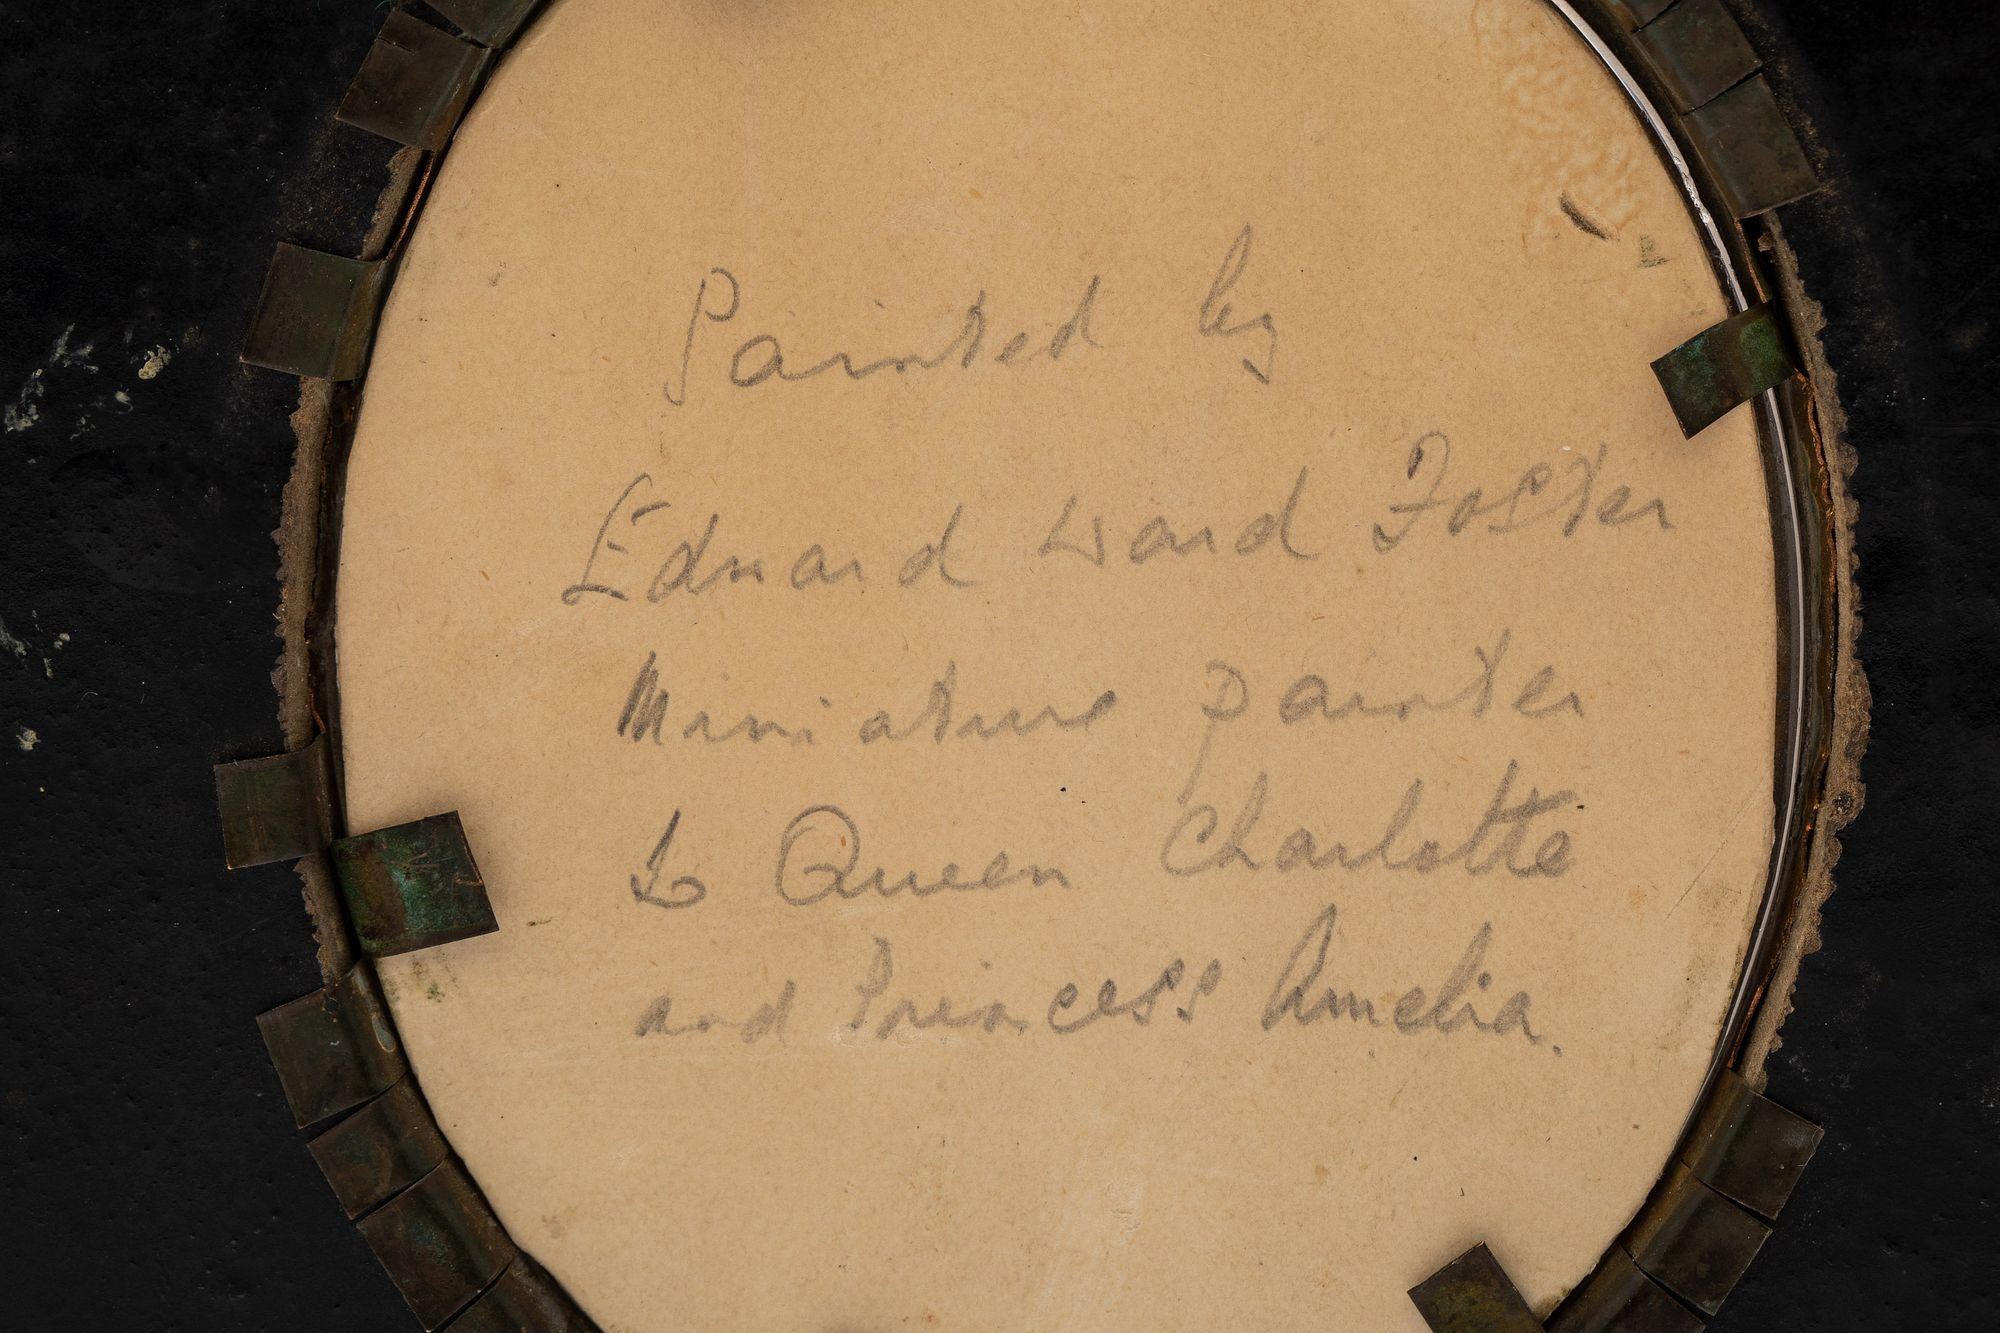 Painted by
Edward Ward Foster
Miniature painter
to Queen Charlotte
and Princess Amelia.